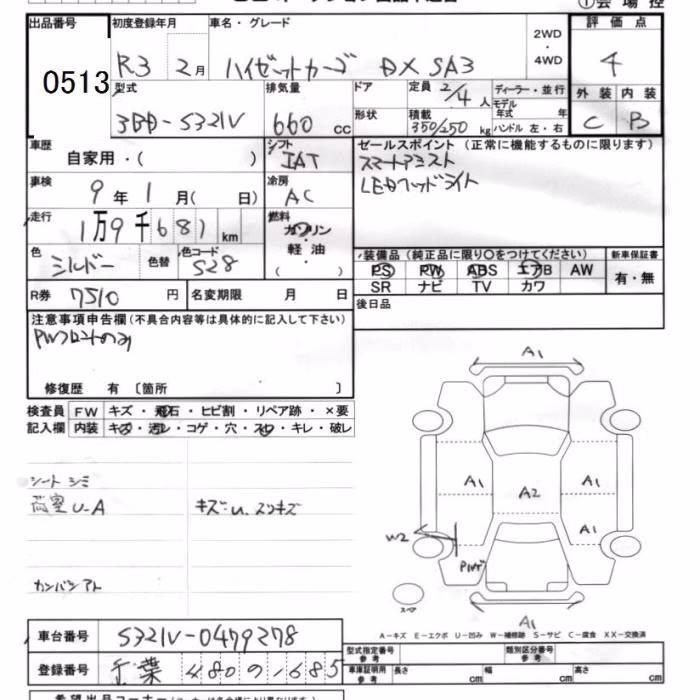 ①会場控
出品番号
0513
初度登録年月
R3 2月
車名・グレード
ハイゼットカーゴ DX SA3
2WD
・
4WD
評価点
4
型式
3BD-S321V
排気量
660 cc
ドア
定員 2/4 人
ディーラー・並行
モデル
年式 年
形状
積載 350/250 kg
ハンドル 左・右
外装 内装
C B
車歴
自家用・( )
シフト
IAT
セールスポイント (正常に機能するものに限ります)
スマートアシスト
LEDヘッドライト
車検
9年 1月( 日)
冷房
AC
走行
1万9千681 km
燃料
ガソリン
・
軽油
( )
色
シルバー
色替
色コード
S28
装備品 (純正品に限り〇をつけてください)
新車保証書
PS PW ABS エアB AW
SR ナビ TV カワ
有・無
R券 7510 円
名変期限 月 日
後日品
注意事項申告欄(不具合内容等は具体的に記入して下さい)
PWフロントのみ
修復歴 有 〔箇所 〕
検査員 FW キズ・飛石・ヒビ割・リペア跡・×要
記入欄 内装 キズ・汚レ・コゲ・穴・スレ・キレ・破レ
シートシミ
荷室U-A
キズ・U、スリキズ
カンバンアト
A1
A1
A2
A1
A1
W2
A1
スペア
A-キズ E-エクボ U-凹み W-補修跡 S-サビ C-腐食 XX-交換済
車台番号 S321V-0479278
登録番号 千葉 480 の 1685
型式指定番号
参考
類別区分番号
参考
車庫証明用
参考
長さ cm 幅 cm 高さ cm